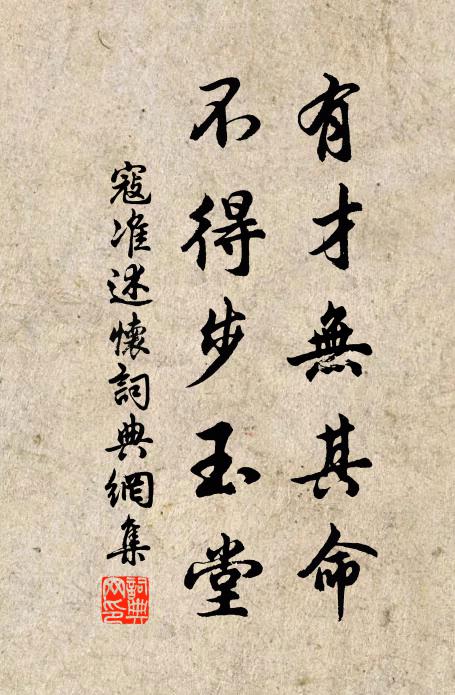 有才無其命
不得步玉堂
寇准述懷詞典網集
詞典网印